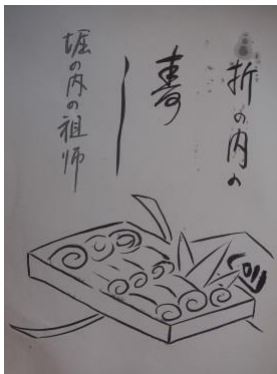 折の内の
寿し
堀の内の祖師